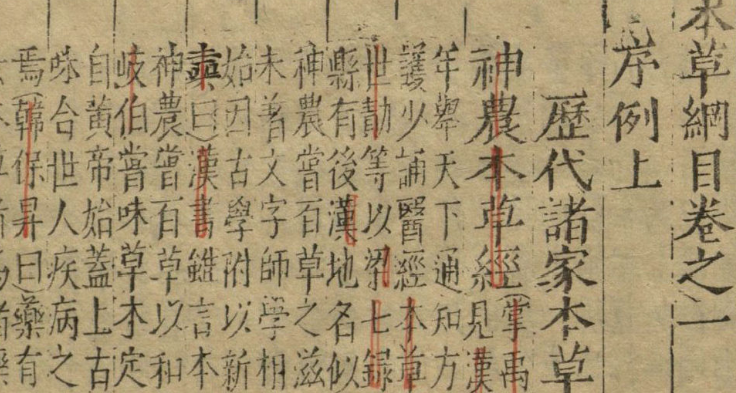 本草綱目卷之一
序例上
歷代諸家本草
神農本草經
掌禹
見漢
年舉天下通知方
護少誦醫經本草
世勣等以梁七錄
縣有後漢地名似
神農嘗百草之滋
未著文字師學相
始因古學附以新
奭曰漢書雖言本
神農嘗百草以和
岐伯嘗味草木定
自黃帝始蓋上古
味合世人疾病之
焉韓保昇曰藥有